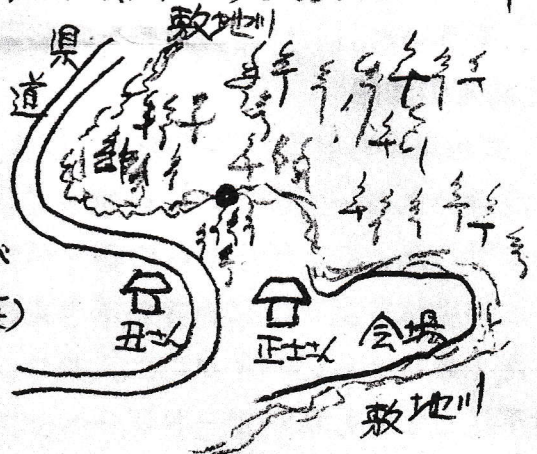 敷地川
県道
丑さん
正士さん
会場
敷地川